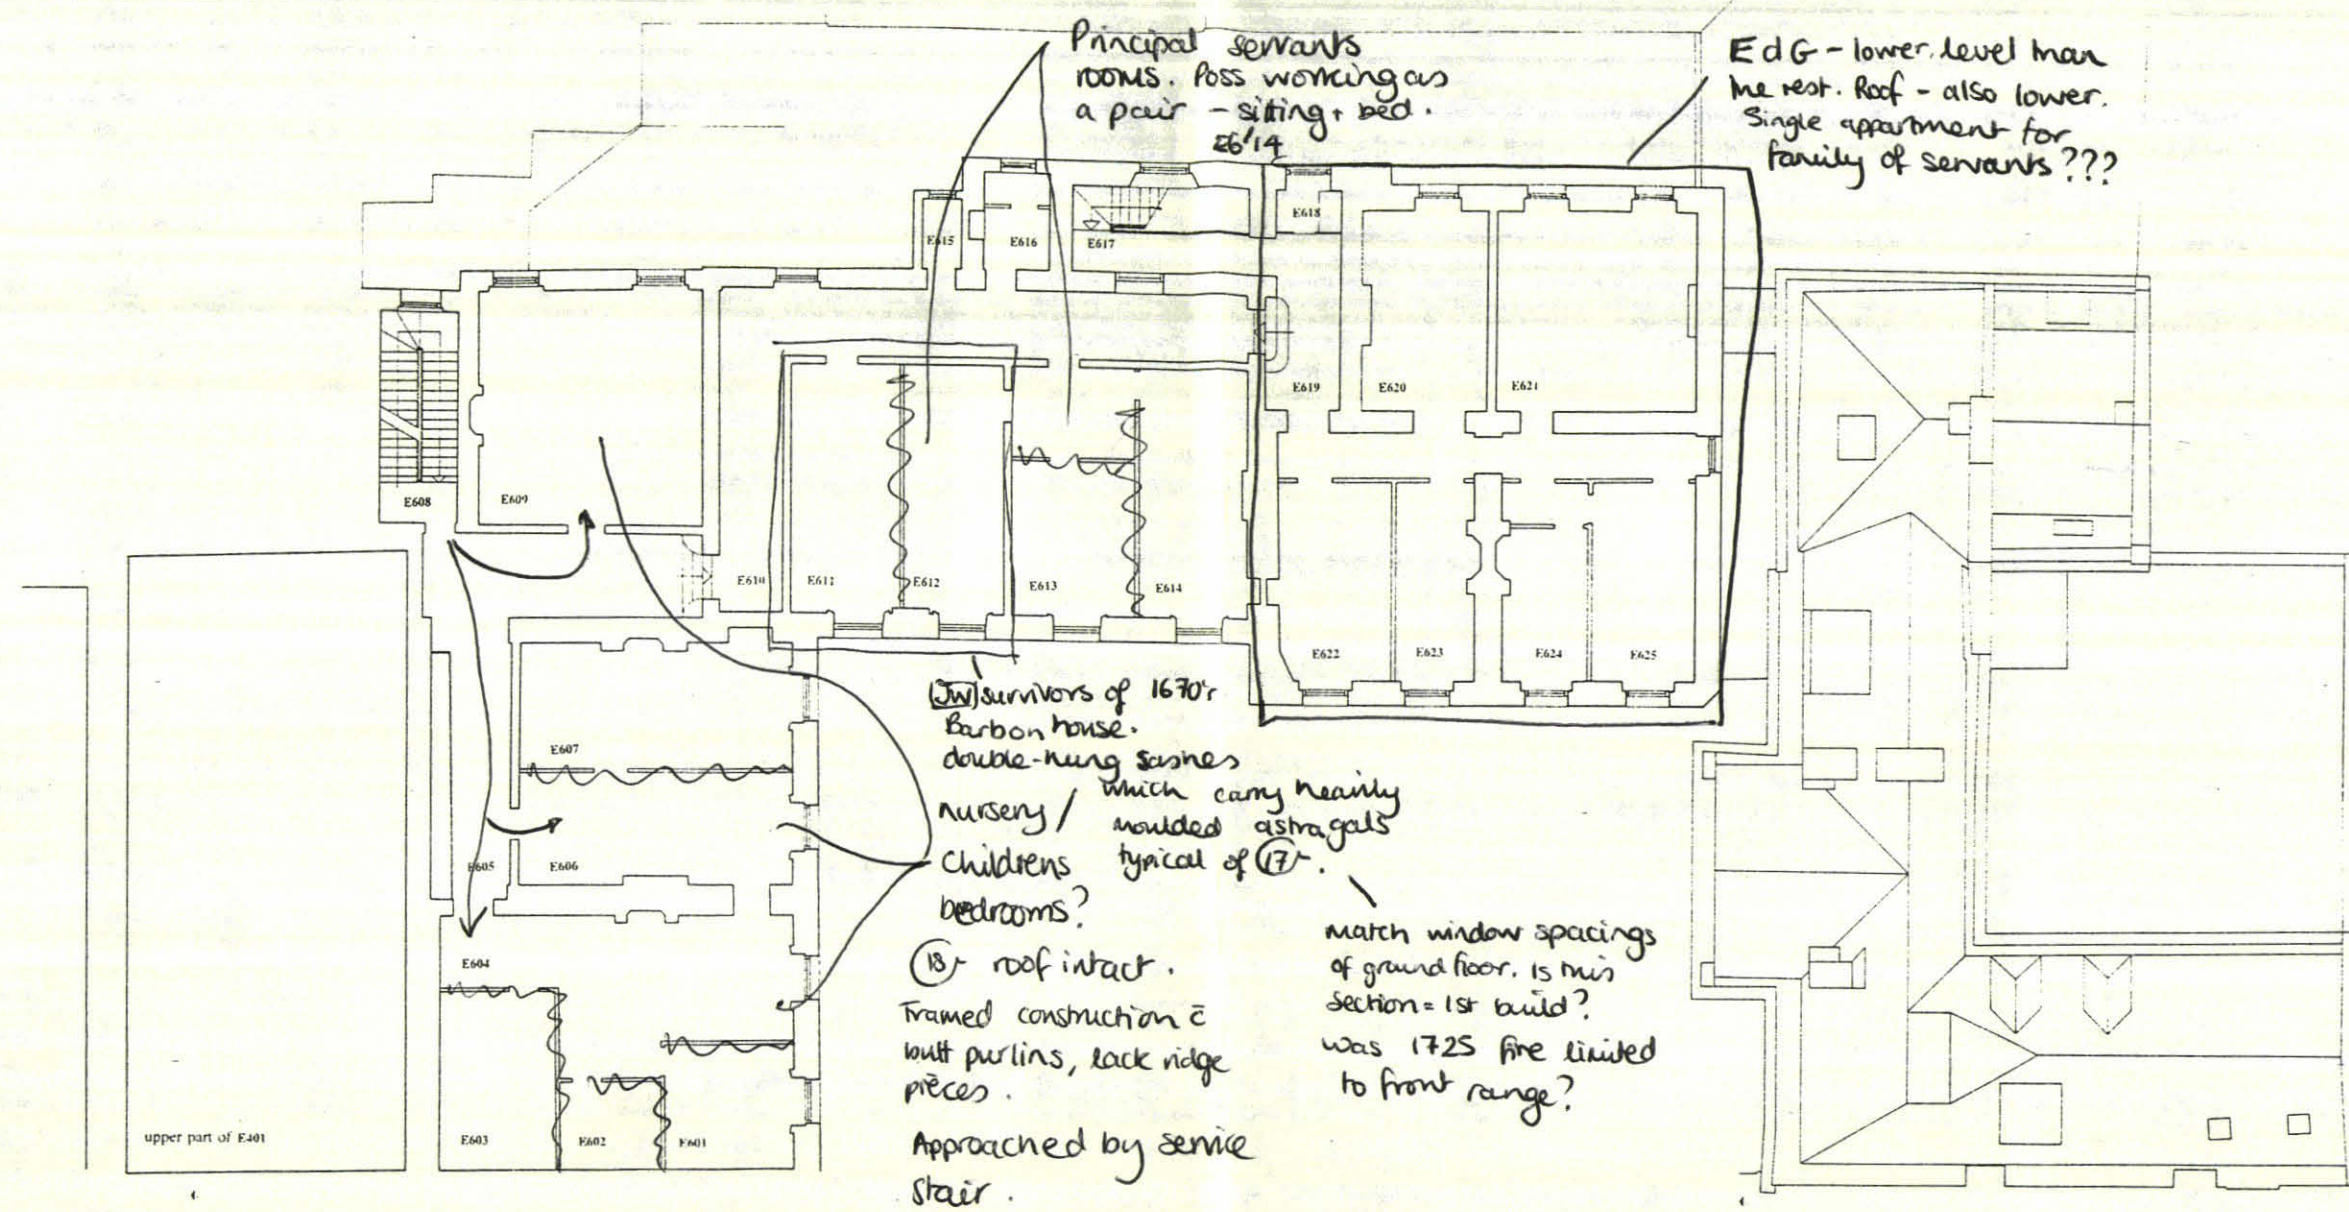 Principal servants
rooms. Poss working as
a pair - sitting + bed.
E6'14
EdG - lower level than
the rest. Roof - also lower.
Single appartment for
family of servants???
E615
E616
E617
E618
E619
E620
E621
E608
E609
E610
E611
E612
E613
E614
E622
E623
E624
E625
(JW) survivors of 1670's
Barbon house.
double-hung sashes
which carry heavily
moulded astragals
typical of 17.
nursery /
Childrens
bedrooms?
18 roof intact.
Framed construction c̄
butt purlins, lack ridge
pieces.
Approached by service
stair.
match window spacings
of ground floor. Is this
section = 1st build?
was 1725 fire limited
to front range?
E607
E605
E606
E604
E603
E602
E601
upper part of E401